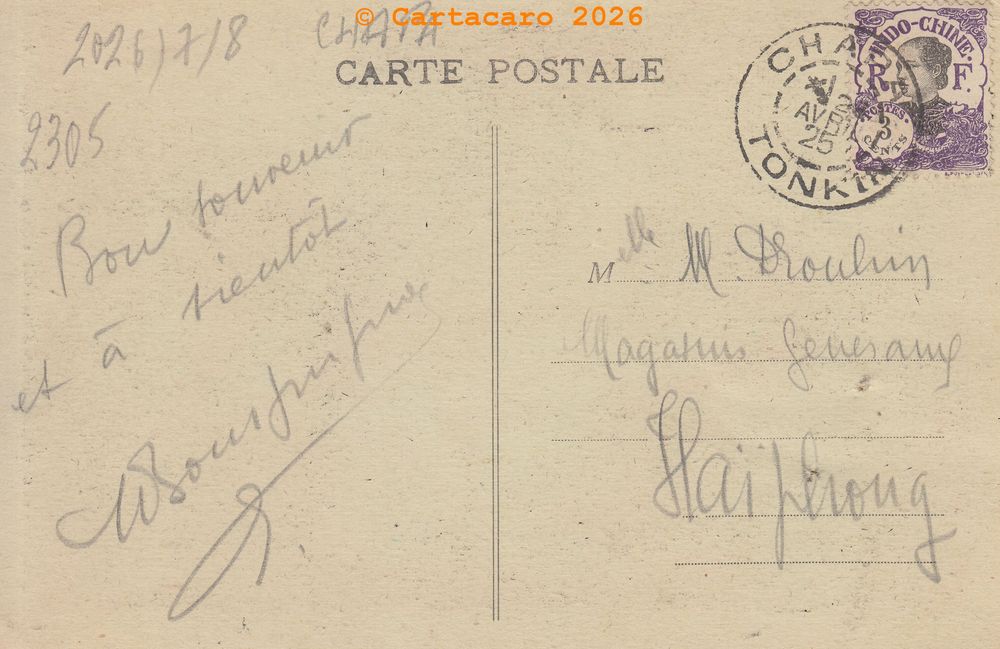 © Cartacaro 2026
2026/7/8
CHAPA
CARTE POSTALE
2305
CHAPA
12
AVRIL
25
TONKIN
INDO-CHINE
R F.
POSTES
3
CENTS
Bon souvenir
et à bientôt
Melle M. Droulin
Magasins Generaux
Haïphong